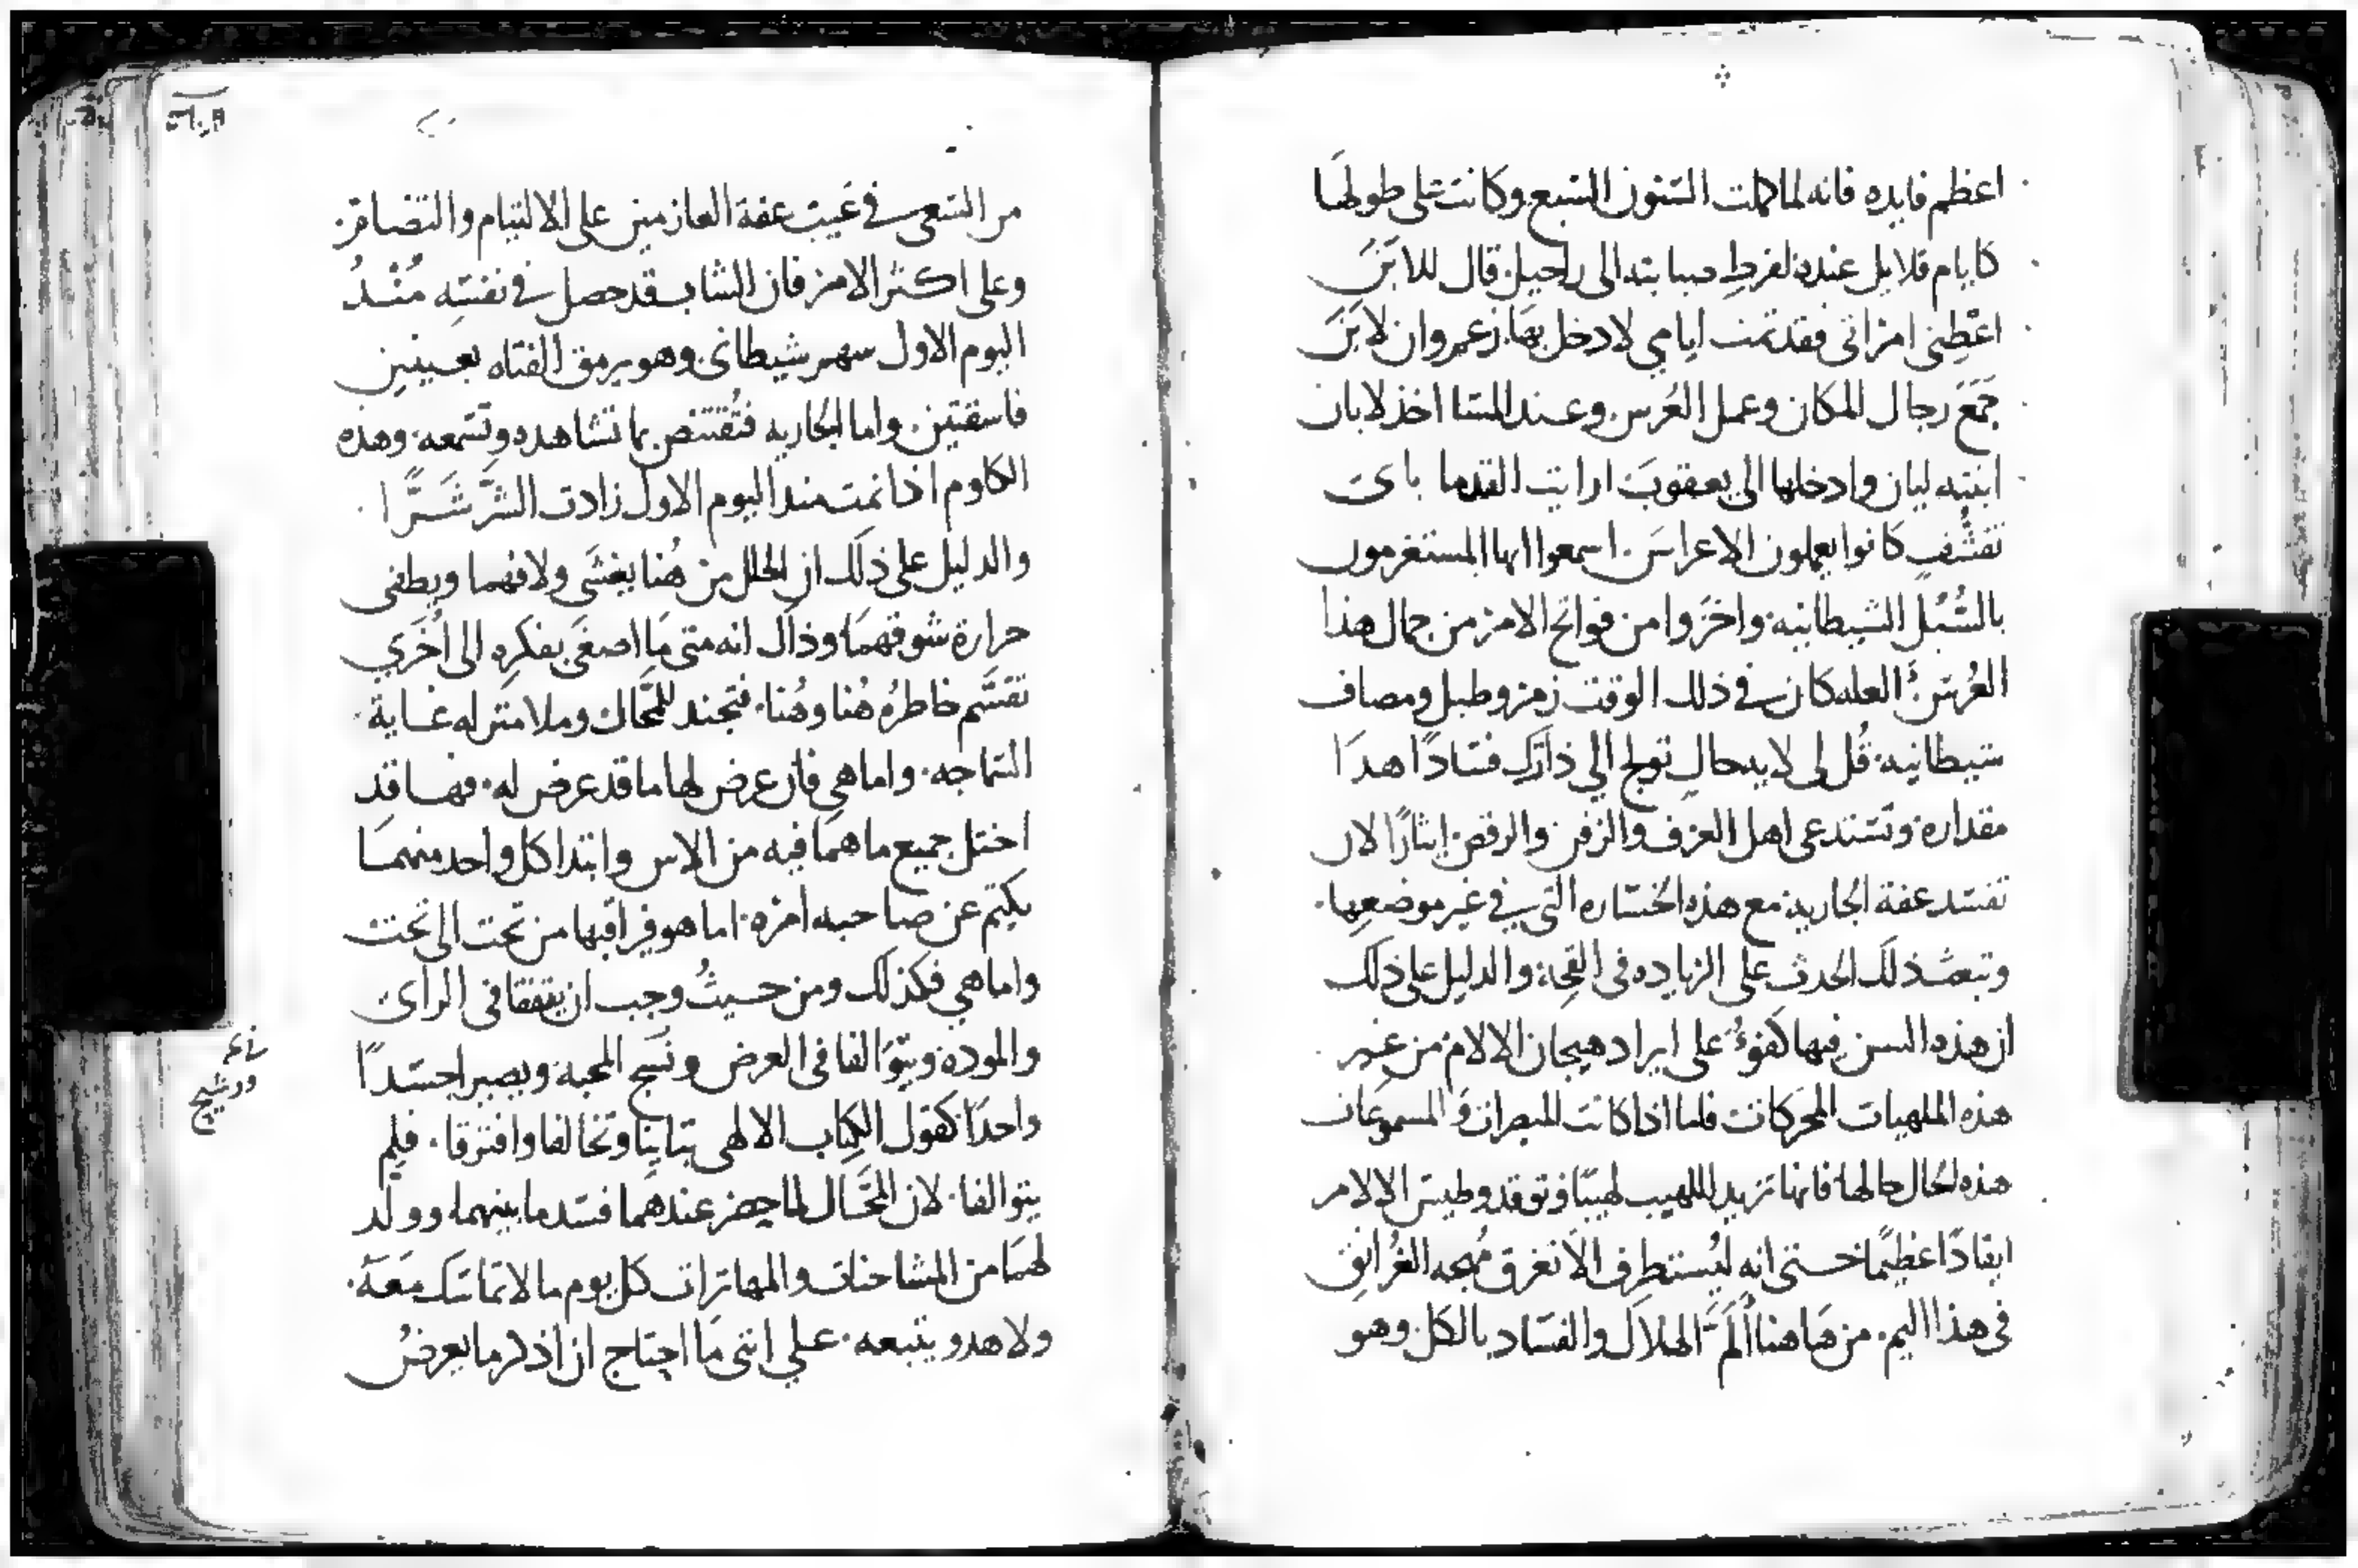 اعظم فايده فانه لما كملت السنون السبع وكانت على طولها
كايام قلايل عنده لفرط صبابته الى راحيل. قال للابَن
اعْطِني امراتى فقد تمت ايامي لادخل بها. زعم وان لابَن
جَمَعَ رجال المكان وعمل العُرس. وعند المسا اخذ لابان
ابنته ليان وادخلها الى يعقوبَ ارايت القدما باى
تقشُّفٍ كانوا يعملون الاعراسَ. اسمعوا ايها المستغرمون
بالسُّبُل الشيطانيه. واخزَوا من فواتح الامر من جمال هذا
العُرس. العله كان في ذلك الوقت زمر وطبل ومصاف
شيطانيه. قُل لى لايه حالٍ تولج الي دارك فسَادًا هدَا
مقداره. وتستدعى اهل العزف والزفن والرقص. ايثارًا لان
تفسد عفة الجاريه. مع هذه الخسَاره التي في غير موضعها.
وتبعث ذلكَ الحدث على الزياده في القِحه. والدليل على ذلكَ
ان هذه السن فيها كفوءٌ على ايراد هيجان الالام من غير
هذه الملهيات المحركات فلما اذا كانت المبصرات والمسموعات
هذه الحال حالها. فانها تزيد اللهيب لهيبًا وتوقد وطيس الالام
ايقادًا عظيمًا. حتى انه ليُستطرف الَا تغرق مُهجه الغرانق
في هذا اليم. من هَاهنا الَمَّ الهلاك والفسَاد بالكل. وهو
من السَعى في غيبت عفة العازمين على الالتيام والتضافر.
وعلى اكثر الامر فان الشاب قد حصل في نفسِه مُنْذُ
اليوم الاول سهم شيطانى. وهو يرمق الفتاه بعينين
فاسقتين. واما الجاريه فتُقتنص بما تشاهده وتسَمعه. وهذه
الكلوم اذا نمت منذ اليوم الاول زادت الشَرَّ شَرًّا
والدليل على ذلكَ ان الخلل من هُنا يغشَى ولافهما ويطفى
حرارة شوقهمَا. وذاكَ انه متى مَا اصغَى بفكره الى اُخرَي
تقسَّم خاطرُه هُنا وهُنا. فتجند للمحَّال وملا منزله غاية
السَماجه. واما هي فان عرض لها ما قد عرض له. فهَا قد
اختل جميع ما همَا فيه من الاس وابتدا كل واحد منهمَا
يكتم عن صاحبه امره. اما هو فيراقبها من تحت الى تحت
واما هي فكذلكَ ومن حيثُ وجب ان يتفقا في الراى
والموده. ويتوَالفا في العرض ونسَج المحبه. ويصيرا جسَدًا
واحدًا كقول الكِتاب الالهى. تباينا وتخالفا وافترقا. فلم
يتوالفا. لان المحَّال لما حضر عندهما فسد ما بينهما. وولد
لهمَا من المشاحنات والمهاترات كل يوم ما لا تماسَك مَعَهُ.
ولا هدو يتبعه. علي اننى مَا احتاج ان اذكر ما يعرضُ